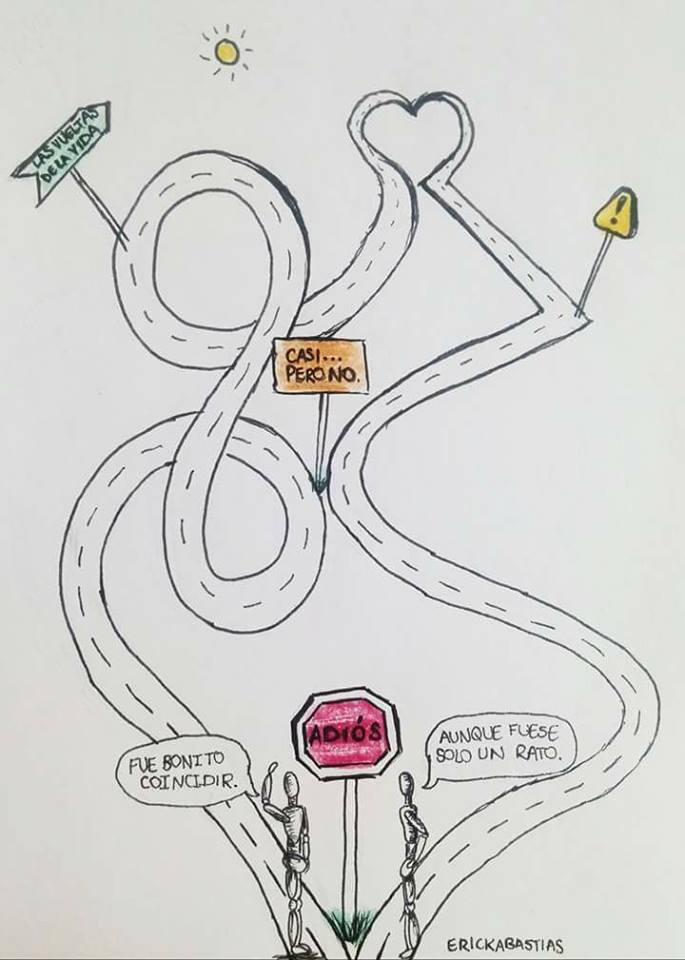 LAS VUELTAS
DE LA VIDA
!
CASI...
PERO NO.
ADIÓS
FUE BONITO
COINCIDIR.
AUNQUE FUESE
SOLO UN RATO.
ERICKABASTIAS